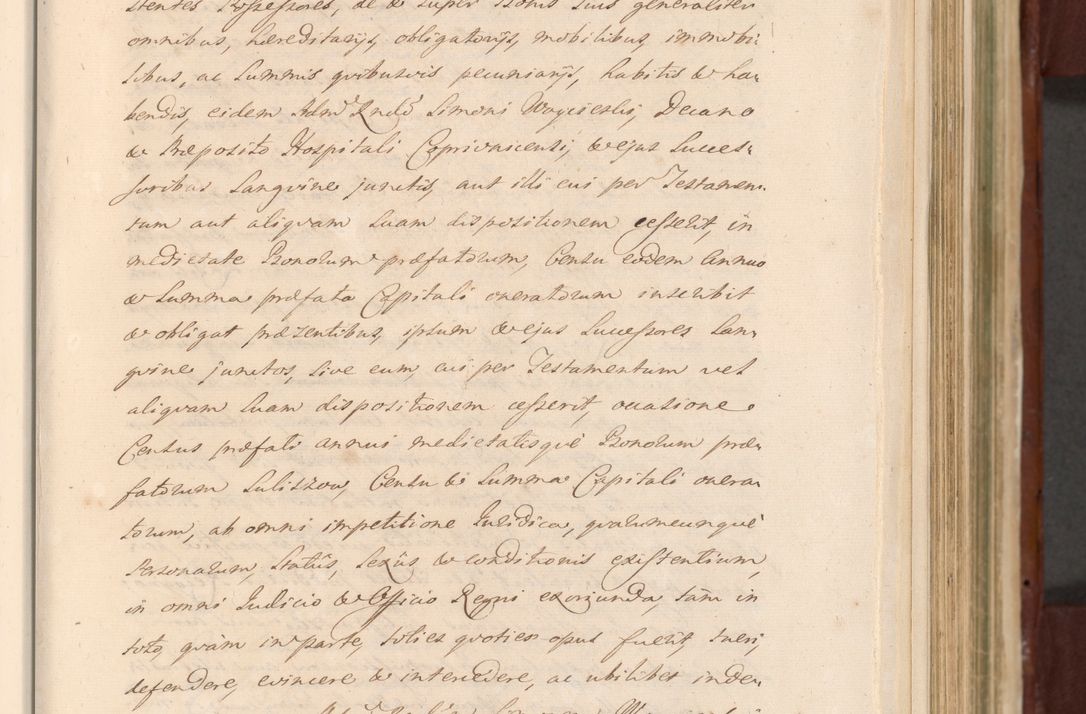 stentes Possessores, ac & super Bonis suis generaliter
omnibus, hæreditarijs, obligatorijs, mobilibus, immobi-
libus, ac Summis quibusvis pecuniarijs, habitis & ha-
bendis, eidem Adm. Rndo Simoni Decano
& Præposito Hospitali Coprivnicensi, & ejus Succes-
soribus Sangvine junctis, aut illi cui per Testamen-
tum aut aliqvam suam dispositionem cesserit, in
medietate Bonorum præfatorum, Censu eodem Annuo
& Summa præfata Capitali oneratorum inscribit
& obligat præsentibus, ipsum & ejus Successores San-
gvine junctos, sive eum, cui per Testamentum vel
aliqvam suam dispositionem cesserit, occasione
Census præfati annui medietatisqve Bonorum præ-
fatorum Suliszow, Censu & Summa Capitali onera-
torum, ab omni impetitione Juridica, qvarumcunqve
Personarum, Statûs, Sexûs & conditionis existentium,
in omni Judicio & Officio Regni exoriunda, tàm in
toto, qvàm in parte, toties qvoties opus fuerit, tueri,
defendere, evincere & intercedere, ac ubilibet inde-